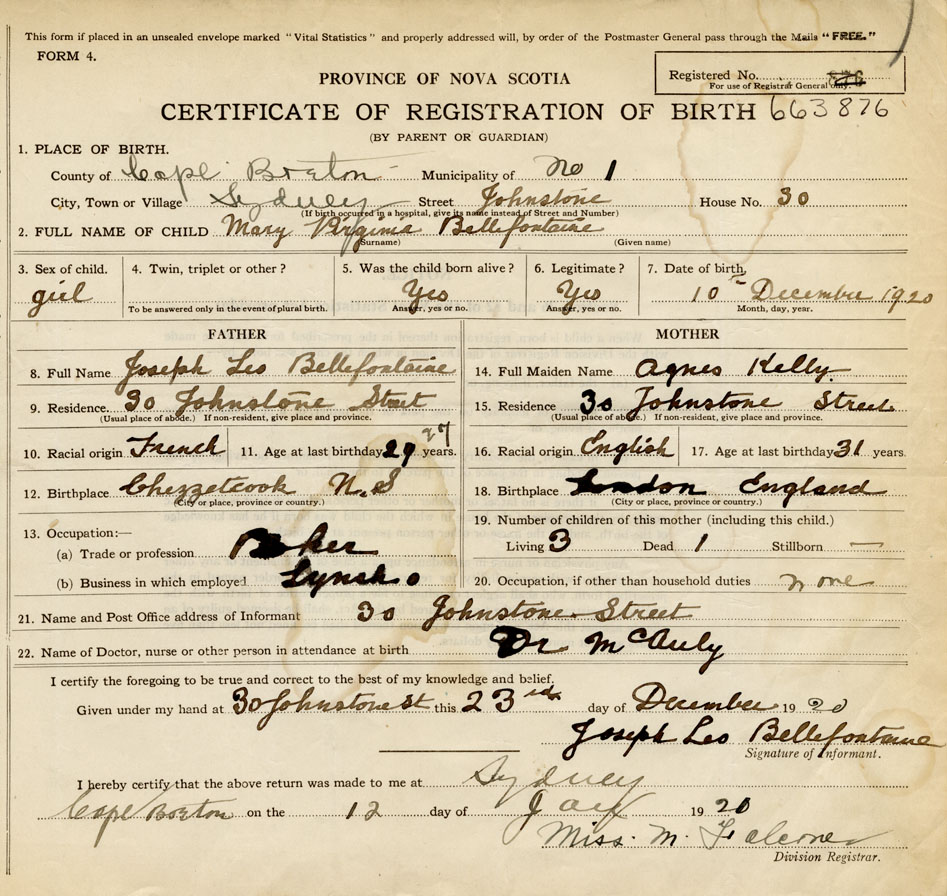 This form if placed in an unsealed envelope marked "Vital Statistics" and properly addressed will, by order of the Postmaster General pass through the Mails "FREE."
FORM 4.
PROVINCE OF NOVA SCOTIA
Registered No. 876
For use of Registrar General only.
CERTIFICATE OF REGISTRATION OF BIRTH 663876
(BY PARENT OR GUARDIAN)
1. PLACE OF BIRTH.
County of Cape Breton Municipality of No 1
City, Town or Village Sydney Street Johnstone House No. 30
(If birth occurred in a hospital, give its name instead of Street and Number)
2. FULL NAME OF CHILD Mary Virginia Bellefontaine
(Surname) (Given name)
3. Sex of child. 4. Twin, triplet or other? 5. Was the child born alive? 6. Legitimate? 7. Date of birth
girl Yes Yes 10th December 1920
To be answered only in the event of plural birth. Answer, yes or no. Answer, yes or no. Month, day, year.
FATHER MOTHER
8. Full Name Joseph Leo Bellefontaine 14. Full Maiden Name Agnes Kelly
9. Residence 30 Johnstone Street 15. Residence 30 Johnstone Street
(Usual place of abode.) If non-resident, give place and province. (Usual place of abode.) If non-resident, give place and province.
10. Racial origin French 11. Age at last birthday 29 27 years. 16. Racial origin English 17. Age at last birthday 31 years.
12. Birthplace Chezzetcook N.S 18. Birthplace London England
(City or place, province or country.) (City or place, province or country.)
13. Occupation:— 19. Number of children of this mother (including this child.)
(a) Trade or profession Baker Living 3 Dead 1 Stillborn —
(b) Business in which employed 20. Occupation, if other than household duties none
21. Name and Post Office address of Informant 30 Johnstone Street
22. Name of Doctor, nurse or other person in attendance at birth Dr McAuly
I certify the foregoing to be true and correct to the best of my knowledge and belief.
Given under my hand at 30 Johnstone St this 23rd day of December 1920
Joseph Leo Bellefontaine
Signature of Informant.
I hereby certify that the above return was made to me at Sydney
Cape Breton on the 12 day of 19
Miss. M.
Division Registrar.